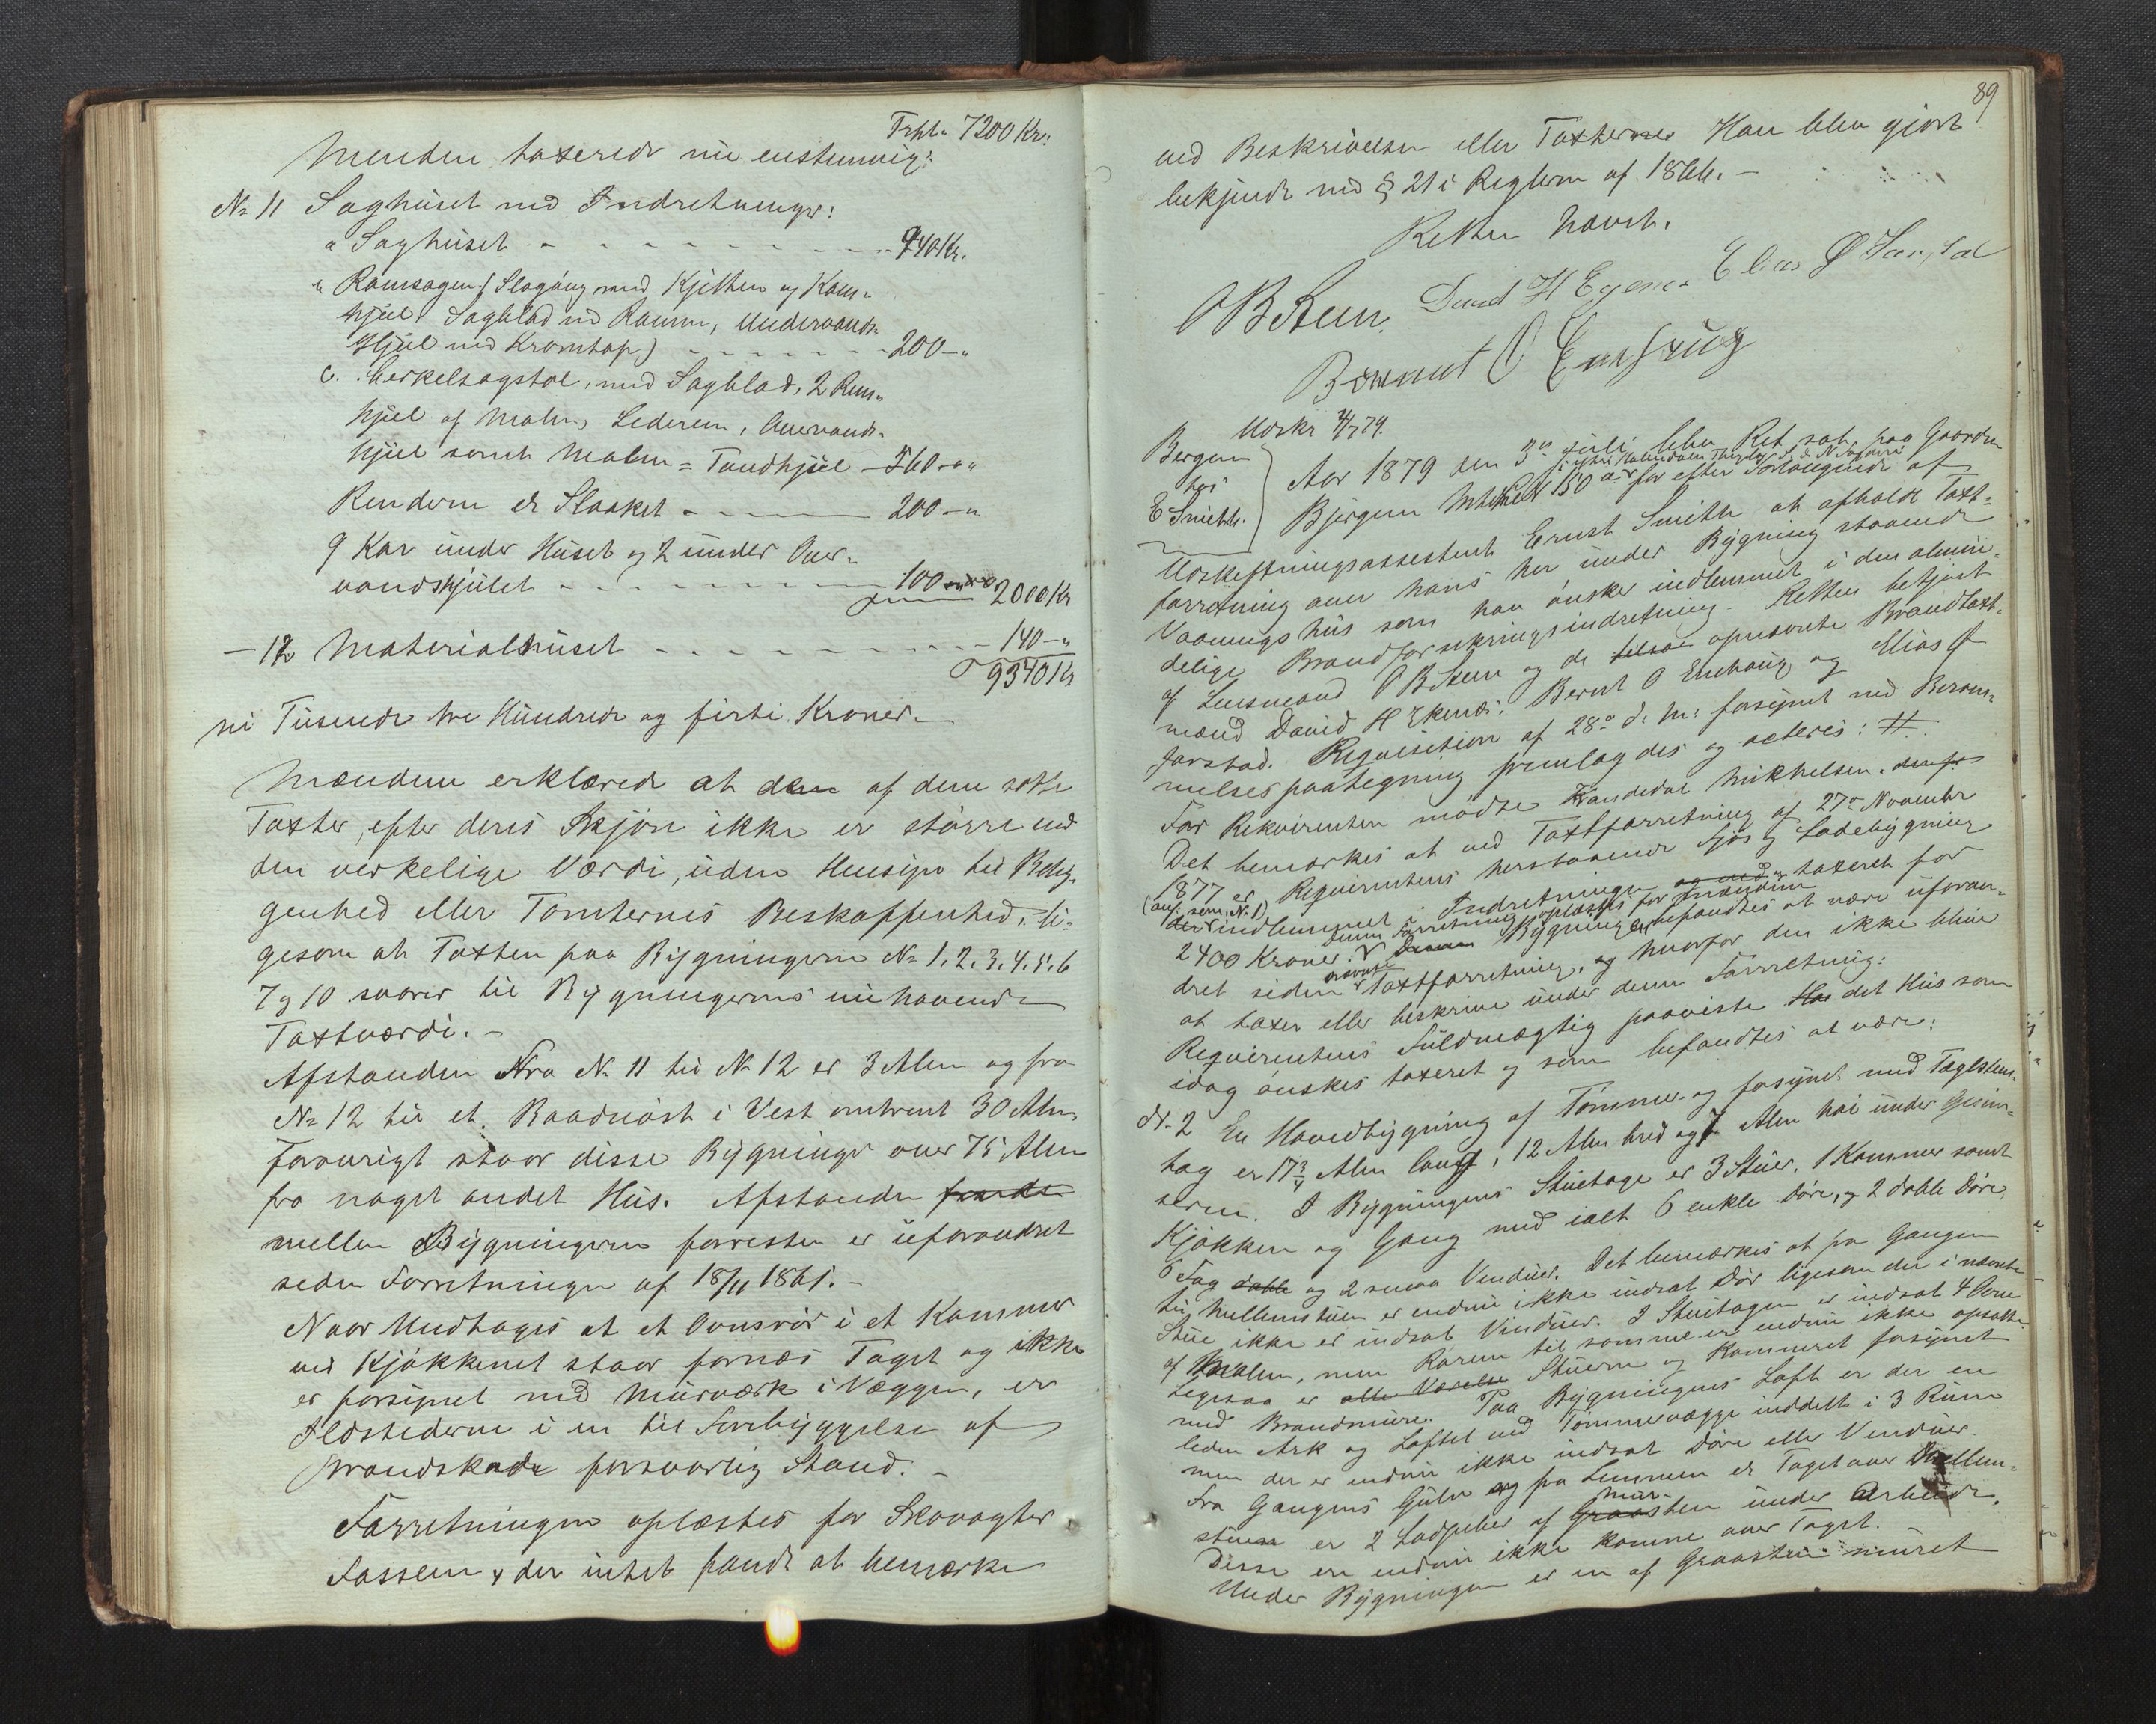 Trpt. 7200 Kr:
Mændene taxerede nu enstemmig:
No 11 Saghuset med Indretninger:
a Saghuset - - - - - 940 Kr.
b Ramsagen (Slagang med Kjetten og Kam-
hjul Sagblad med Ramm, Undervands-
Hjul med Kromtap) - - - - 200 - "
c. Cerkelsagstol, med Sagblad, 2 Rem-
hjul af Malm, Lederem, Overvands-
hjul samt Malm-Tandhjul - 560 - "
Renderne er Slaaket - - - 200 - "
9 Kar under Huset og 2 under Over-
vandshjulet - - - - - 100 - 2000 Kr
- 12 Materialhuset - - - - - 140 - "
9340 Kr
ni Tusende tre Hundrede og firti Kroner. -
Mændene erklærede at de af dem satte
Taxter, efter deres Skjøn ikke er større end
den verkelige Værdi, uden Hensyn til Belig-
genhed eller Tomternes Beskaffenhed, li-
gesom at Taxten paa Bygningerne No 1, 2, 3, 4, 5, 6
7 og 10 svarer til Bygningernes nuhavende
Taxtværdi. -
Afstanden fra No 11 til No 12 er 3 Alen og fra
No 12 til et Baadnøst i Vest omtrent 30 Alen
Forøvrigt staar disse Bygninger over 75 Alen
fra noget andet Hus. Afstanden
mellem Bygningerne forresten er uforandret
siden Forretningen af 18/11 1861. -
Naar Undtages at et Ovnsrør i et Kammer
ved Kjøkkenet staar fornær Taget og ikke
er forsynet med Murværk i Væggen, er
Ildstederne i en til Forebyggelse af
Brandskade forsvarlig Stand. -
Forretningen oplæstes for Skovogter
Fossem, der intet fandt at bemærke
89
ved Beskrivelsen eller Taxterne. Han blev gjort
bekjendt med § 21 i Reglerne af 1866. -
Retten hævet.
O B Steen. David H Egenes Elias Ø Jarstad
Bernut O Enehaug
Udskr 4/7 79.
Bergem
hos
E Smith.
Aar 1879 den 3die Juli blev Ret sat paa Gaarden
Bjergem Mtrkel No 150 for efter Forlangende af
Udskiftningsassestent Ernst Smith at afholde Taxt-
forretning over hans her under Bygning staaende
Vaaningshus som han ønsker indlemmet i den almin-
delige Brandforsikringsindretning. Retten betjent
af Lensmand O B Steen og de opnevnte Brandtaxt-
mænd David H Ekenæs, Bernt O Enehaug og Elias Ø
Jarstad. Reqvisition af 28de d. M. forsynet med Beram-
melsespaategning fremlagdes og acteres: #
For Rekvirenten mødte Mikkelsen.
Det bemærkes at ved Taxtforretning af 27de November
1877 er Reqvirentens herstaaende Fjøs og Ladebygning
(anf. som No 1)
der indlemmet i Indretningen og taxeret for
2400 Kroner. Denne Forretning oplæstes for Mændene
Bygningen befandtes at være uforan-
dret siden nævnte Taxtforretning, og hvorfor den ikke blive
at taxere eller beskrive under denne Forretning:
Reqvirentens Fuldmægtig paaviste det Hus som
idag ønskes taxeret og som befandtes at være:
No 2 En Hovedbygning af Tømmer og forsynet med Taglstens-
tag er 17 3/4 Alen lang, 12 Alen bred og 7 Alen høi under Gesim-
serne. I Bygningens Stuetage er 3 Stuer, 1 Kammer samt
Kjøkken og Gang med ialt 6 enkle Døre, og 2 doble Døre,
6 Fag og 2 smaa Venduer. Det bemærkes at fra Gangen
til Mellemstuen er endnu ikke indsat Dør ligesom der i nævnte
Stue ikke er indsat Vinduer. I Stuetagen er indsat 4 Ovne
af Malm, men Rørene til samme er endnu ikke opsatte.
Ligesaa er Stuerne og Kammeret forsynet
med Brandmure. Paa Bygningens Loft er der en
liden Ark og Loftet med Tømmervægge inddelt i 3 Rum
men der er endnu ikke indsat Døre eller Venduer.
Fra Gangens Gulv og fra Lemmen er Taget over Mellem-
stuen er 2 Ladpiber af Mursten under Arbeide.
Disse ere endnu ikke komne over Taget.
Under Bygningen er en af Graasten muret